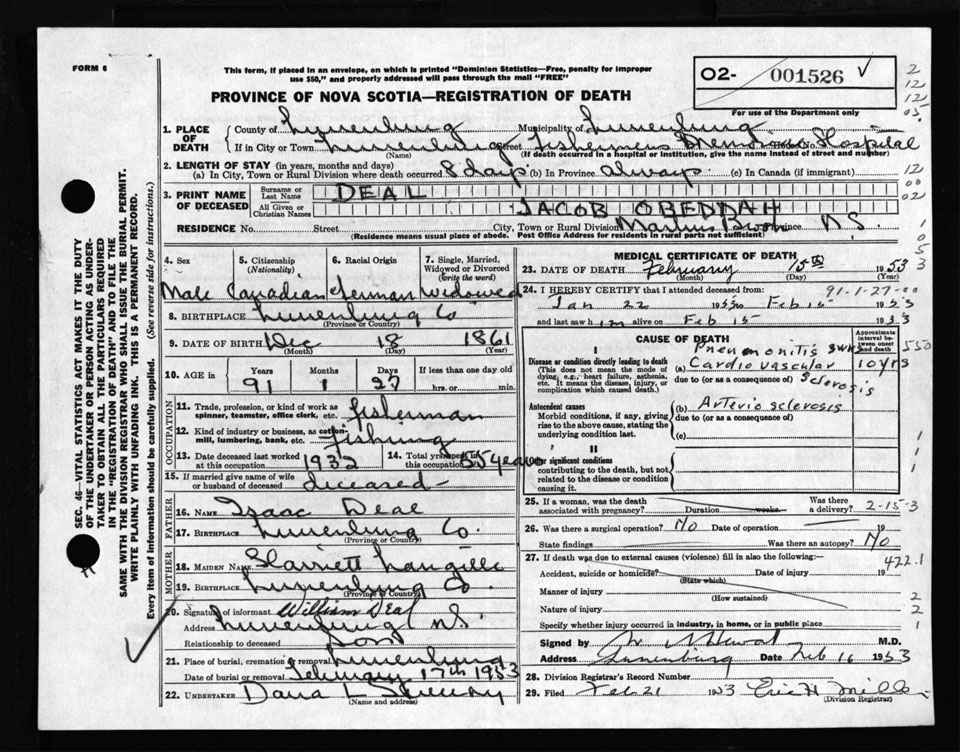 FORM 6
This form, if placed in an envelope, on which is printed "Dominion Statistics—Free, penalty for improper
use $50," and properly addressed will pass through the mail "FREE"
O2- 001526 ✓
PROVINCE OF NOVA SCOTIA—REGISTRATION OF DEATH
For use of the Department only
2
12
12
05.
1. PLACE OF DEATH
County of Lunenburg Municipality of Lunenburg
If in City or Town Lunenburg Street Fishermens Memorial Hospital House No.
(Name) (If death occurred in a hospital or institution, give the name instead of street and number)
2. LENGTH OF STAY (in years, months and days)
(a) In City, Town or Rural Division where death occurred 8 days (b) In Province always (c) In Canada (if immigrant)
12
00
02
3. PRINT NAME OF DECEASED
Surname or Last Name DEAL
All Given or Christian Names JACOB OBEDDAH
RESIDENCE No. Street City, Town or Rural Division Province N.S.
(Residence means usual place of abode. Post Office Address for residents in rural parts not sufficient)
1
0
5
3
4. Sex
Male
5. Citizenship
(Nationality)
Canadian
6. Racial Origin
German
7. Single, Married, Widowed or Divorced
(write the word)
Widowed
8. BIRTHPLACE Lunenburg Co
(Province or Country)
9. DATE OF BIRTH Dec 18 1861
(Month) (Day) (Year)
10. AGE in Years Months Days If less than one day
91 1 27 hrs. or min.
OCCUPATION
11. Trade, profession, or kind of work as
spinner, teamster, office clerk, etc. fisherman
12. Kind of industry or business, as cotton-
mill, lumbering, bank, etc. fishing
13. Date deceased last worked
at this occupation 1932
14. Total years spent in
this occupation 55 years
15. If married give name of wife
or husband of deceased deceased
FATHER
16. NAME Isaac Deal
17. BIRTHPLACE Lunenburg Co.
(Province or Country)
MOTHER
18. MAIDEN NAME Harriett Langille
19. BIRTHPLACE Lunenburg Co.
(Province or Country)
20. Signature of informant William Deal
Address Lunenburg N.S.
Relationship to deceased Son
21. Place of burial, cremation or removal Lunenburg
Date of burial or removal February 17th 1953
22. UNDERTAKER Dana L
(Name and address)
MEDICAL CERTIFICATE OF DEATH
23. DATE OF DEATH February 15th 1953
(Month) (Day)
24. I HEREBY CERTIFY that I attended deceased from: 91-1-27-00
Jan 22 1953 to Feb 15 1953
and last saw him alive on Feb 15 1953
CAUSE OF DEATH
Approximate interval between onset and death
I
Disease or condition directly leading to death
(This does not mean the mode of dying, e.g., heart failure, asthenia, etc. It means the disease, injury, or complication which caused death.)
Pneumonitis
(a) Cardio vascular sclerosis 10 yrs
due to (or as a consequence of)
550
Antecedent causes
Morbid conditions, if any, giving rise to the above cause, stating the underlying condition last.
(b) Arterio sclerosis
due to (or as a consequence of)
(c)
II
Other significant conditions
contributing to the death, but not related to the disease or condition causing it.
1
1
1
25. If a woman, was the death
associated with pregnancy? Duration weeks. Was there
a delivery? 2-15-3
26. Was there a surgical operation? No Date of operation 19
State findings Was there an autopsy? No
27. If death was due to external causes (violence) fill in also the following:—
422.1
Accident, suicide or homicide? Date of injury 19
(State which)
Manner of injury 2
(How sustained)
Nature of injury 2
Specify whether injury occurred in industry, in home, or in public place 1
Signed by M.D.
Address Lunenburg Date Feb 16 1953
28. Division Registrar's Record Number
29. Filed Feb 21 1953 Eric H
(Division Registrar)
SEC. 46—VITAL STATISTICS ACT MAKES IT THE DUTY
OF THE UNDERTAKER OR PERSON ACTING AS UNDER-
TAKER TO OBTAIN ALL THE PARTICULARS REQUIRED
IN THE "REGISTRATION OF DEATH" AND TO FILE THE
SAME WITH THE DIVISION REGISTRAR WHO SHALL ISSUE THE BURIAL PERMIT.
WRITE PLAINLY WITH UNFADING INK. THIS IS A PERMANENT RECORD.
Every item of information should be carefully supplied. (See reverse side for instructions.)